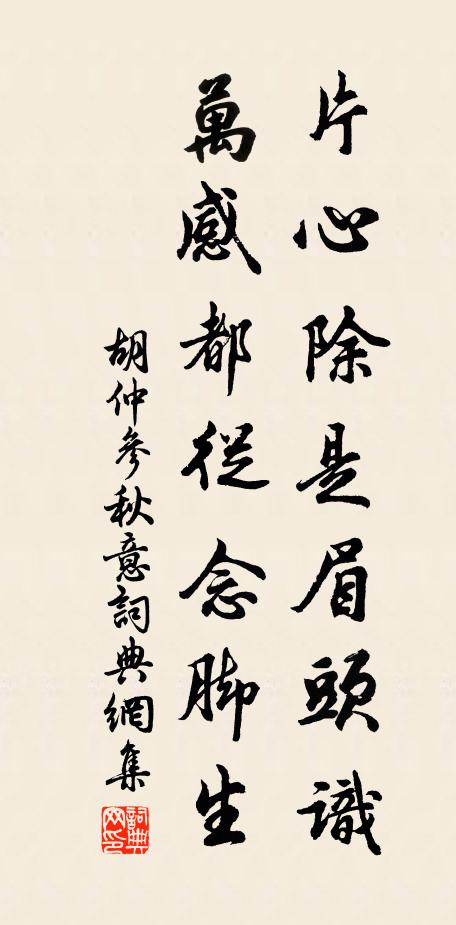 片心除是眉頭識
萬感都從念脚生
胡仲參秋意詞典網集
詞典網印